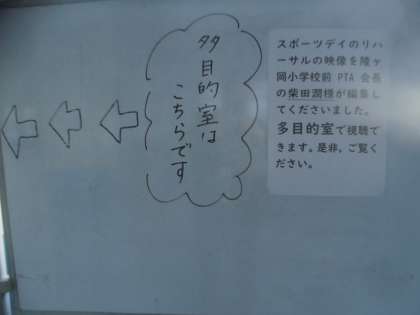 多目的室は
こちらです
スポーツデイのリハ
ーサルの映像を陵ヶ
岡小学校前 PTA 会長
の柴田潤様が編集し
てくださいました。
多目的室で視聴で
きます。是非、ご覧く
ださい。